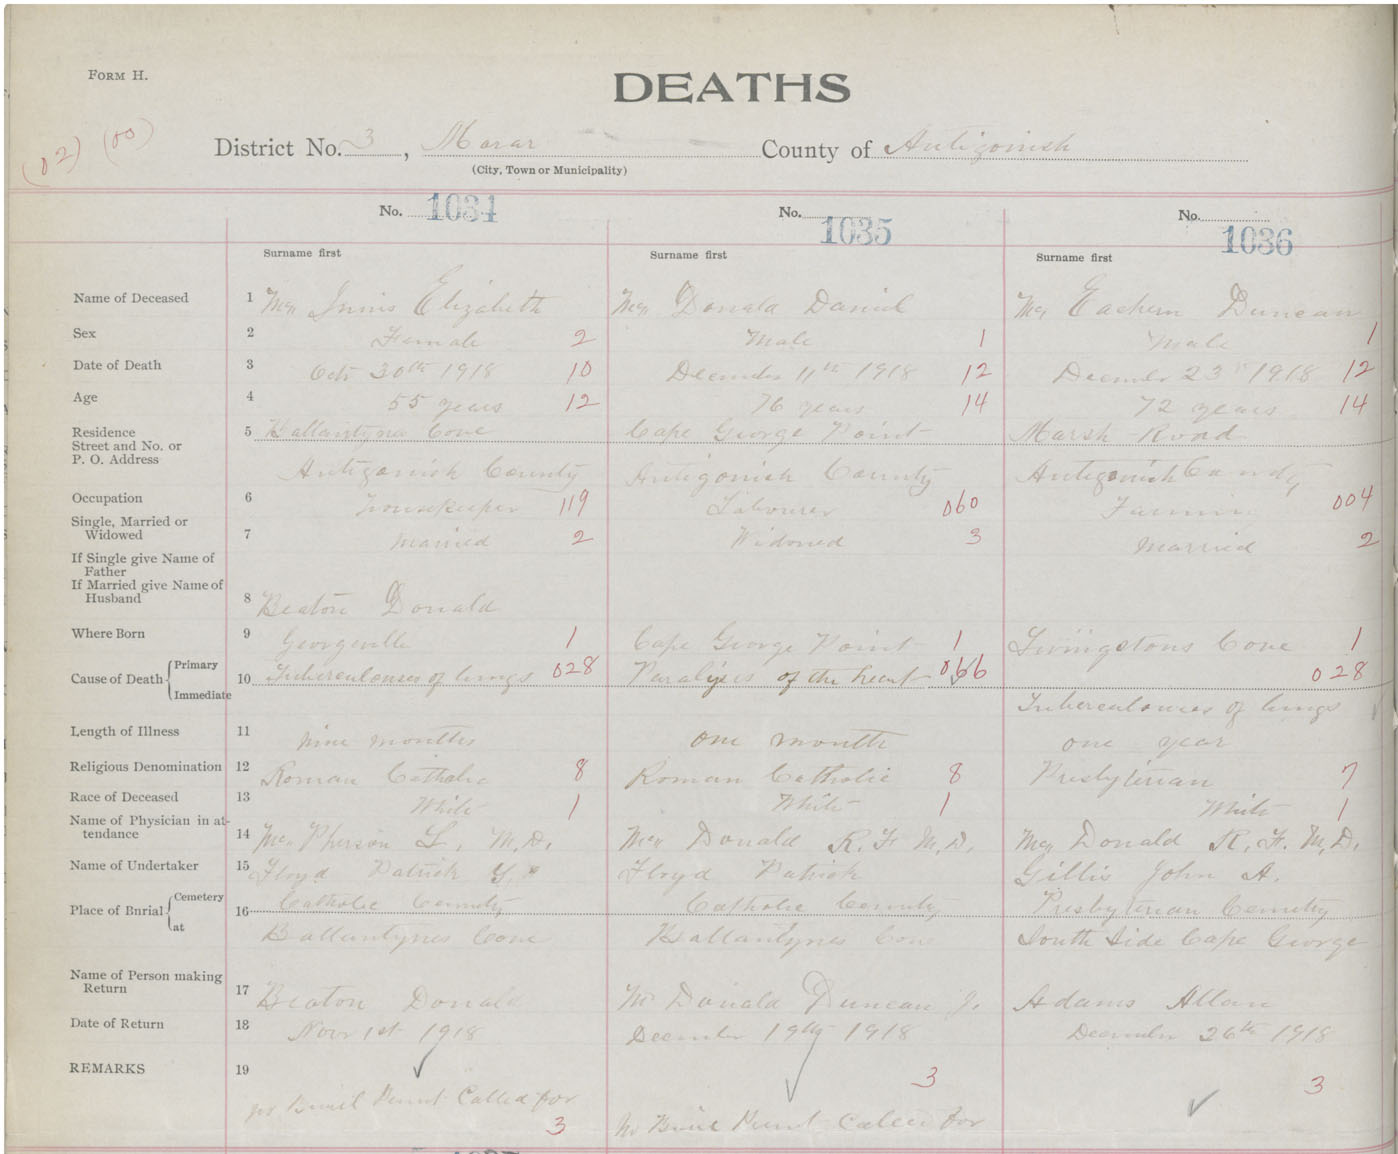 FORM H.
DEATHS
(02) (00)
District No. 3, Morar County of Antigonish
(City, Town or Municipality)
No. 1034 No. 1035 No. 1036
Surname first Surname first Surname first
Name of Deceased 1 Mc Innis Elizabeth Mc Donald Daniel Mc Eachern Duncan
Sex 2 Female 2 Male 1 Male 1
Date of Death 3 Oct 30th 1918 10 December 11th 1918 12 December 23rd 1918 12
Age 4 55 years 12 76 years 14 72 years 14
Residence
Street and No. or
P. O. Address
5 Ballantyne Cove Cape George Point Marsh Road
Antigonish County Antigonish County Antigonish County
Occupation 6 Housekeeper 119 Labourer 060 Farming 004
Single, Married or
Widowed 7 Married 2 Widowed 3 Married 2
If Single give Name of
Father
If Married give Name of
Husband 8 Beaton Donald
Where Born 9 Georgeville 1 Cape George Point 1 Livingstons Cove 1
Cause of Death { Primary
Immediate
10 Tuberculouses of lungs 028 Paralysis of the heart 066 028
Tuberculouses of lungs
Length of Illness 11 nine months one month one year
Religious Denomination 12 Roman Catholic 8 Roman Catholic 8 Presbyterian 7
Race of Deceased 13 White 1 White 1 White 1
Name of Physician in at-
tendance 14 Mc Pherson L. M.D. Mc Donald R. F. M.D. Mc Donald R. F. M.D.
Name of Undertaker 15 Floyd Patrick Floyd Patrick Gillis John A.
Place of Burial { Cemetery
at
16 Catholic Cemetry Catholic Cemetry Presbyterian Cemetry
Ballantynes Cove Ballantynes Cove South Side Cape George
Name of Person making
Return 17 Beaton Donald Mc Donald Duncan J. Adams Allan
Date of Return 18 Novr 1st 1918 December 19th 1918 December 26th 1918
REMARKS 19
3 3
no Burial Permit Called for
3
no Burial Permit Called for